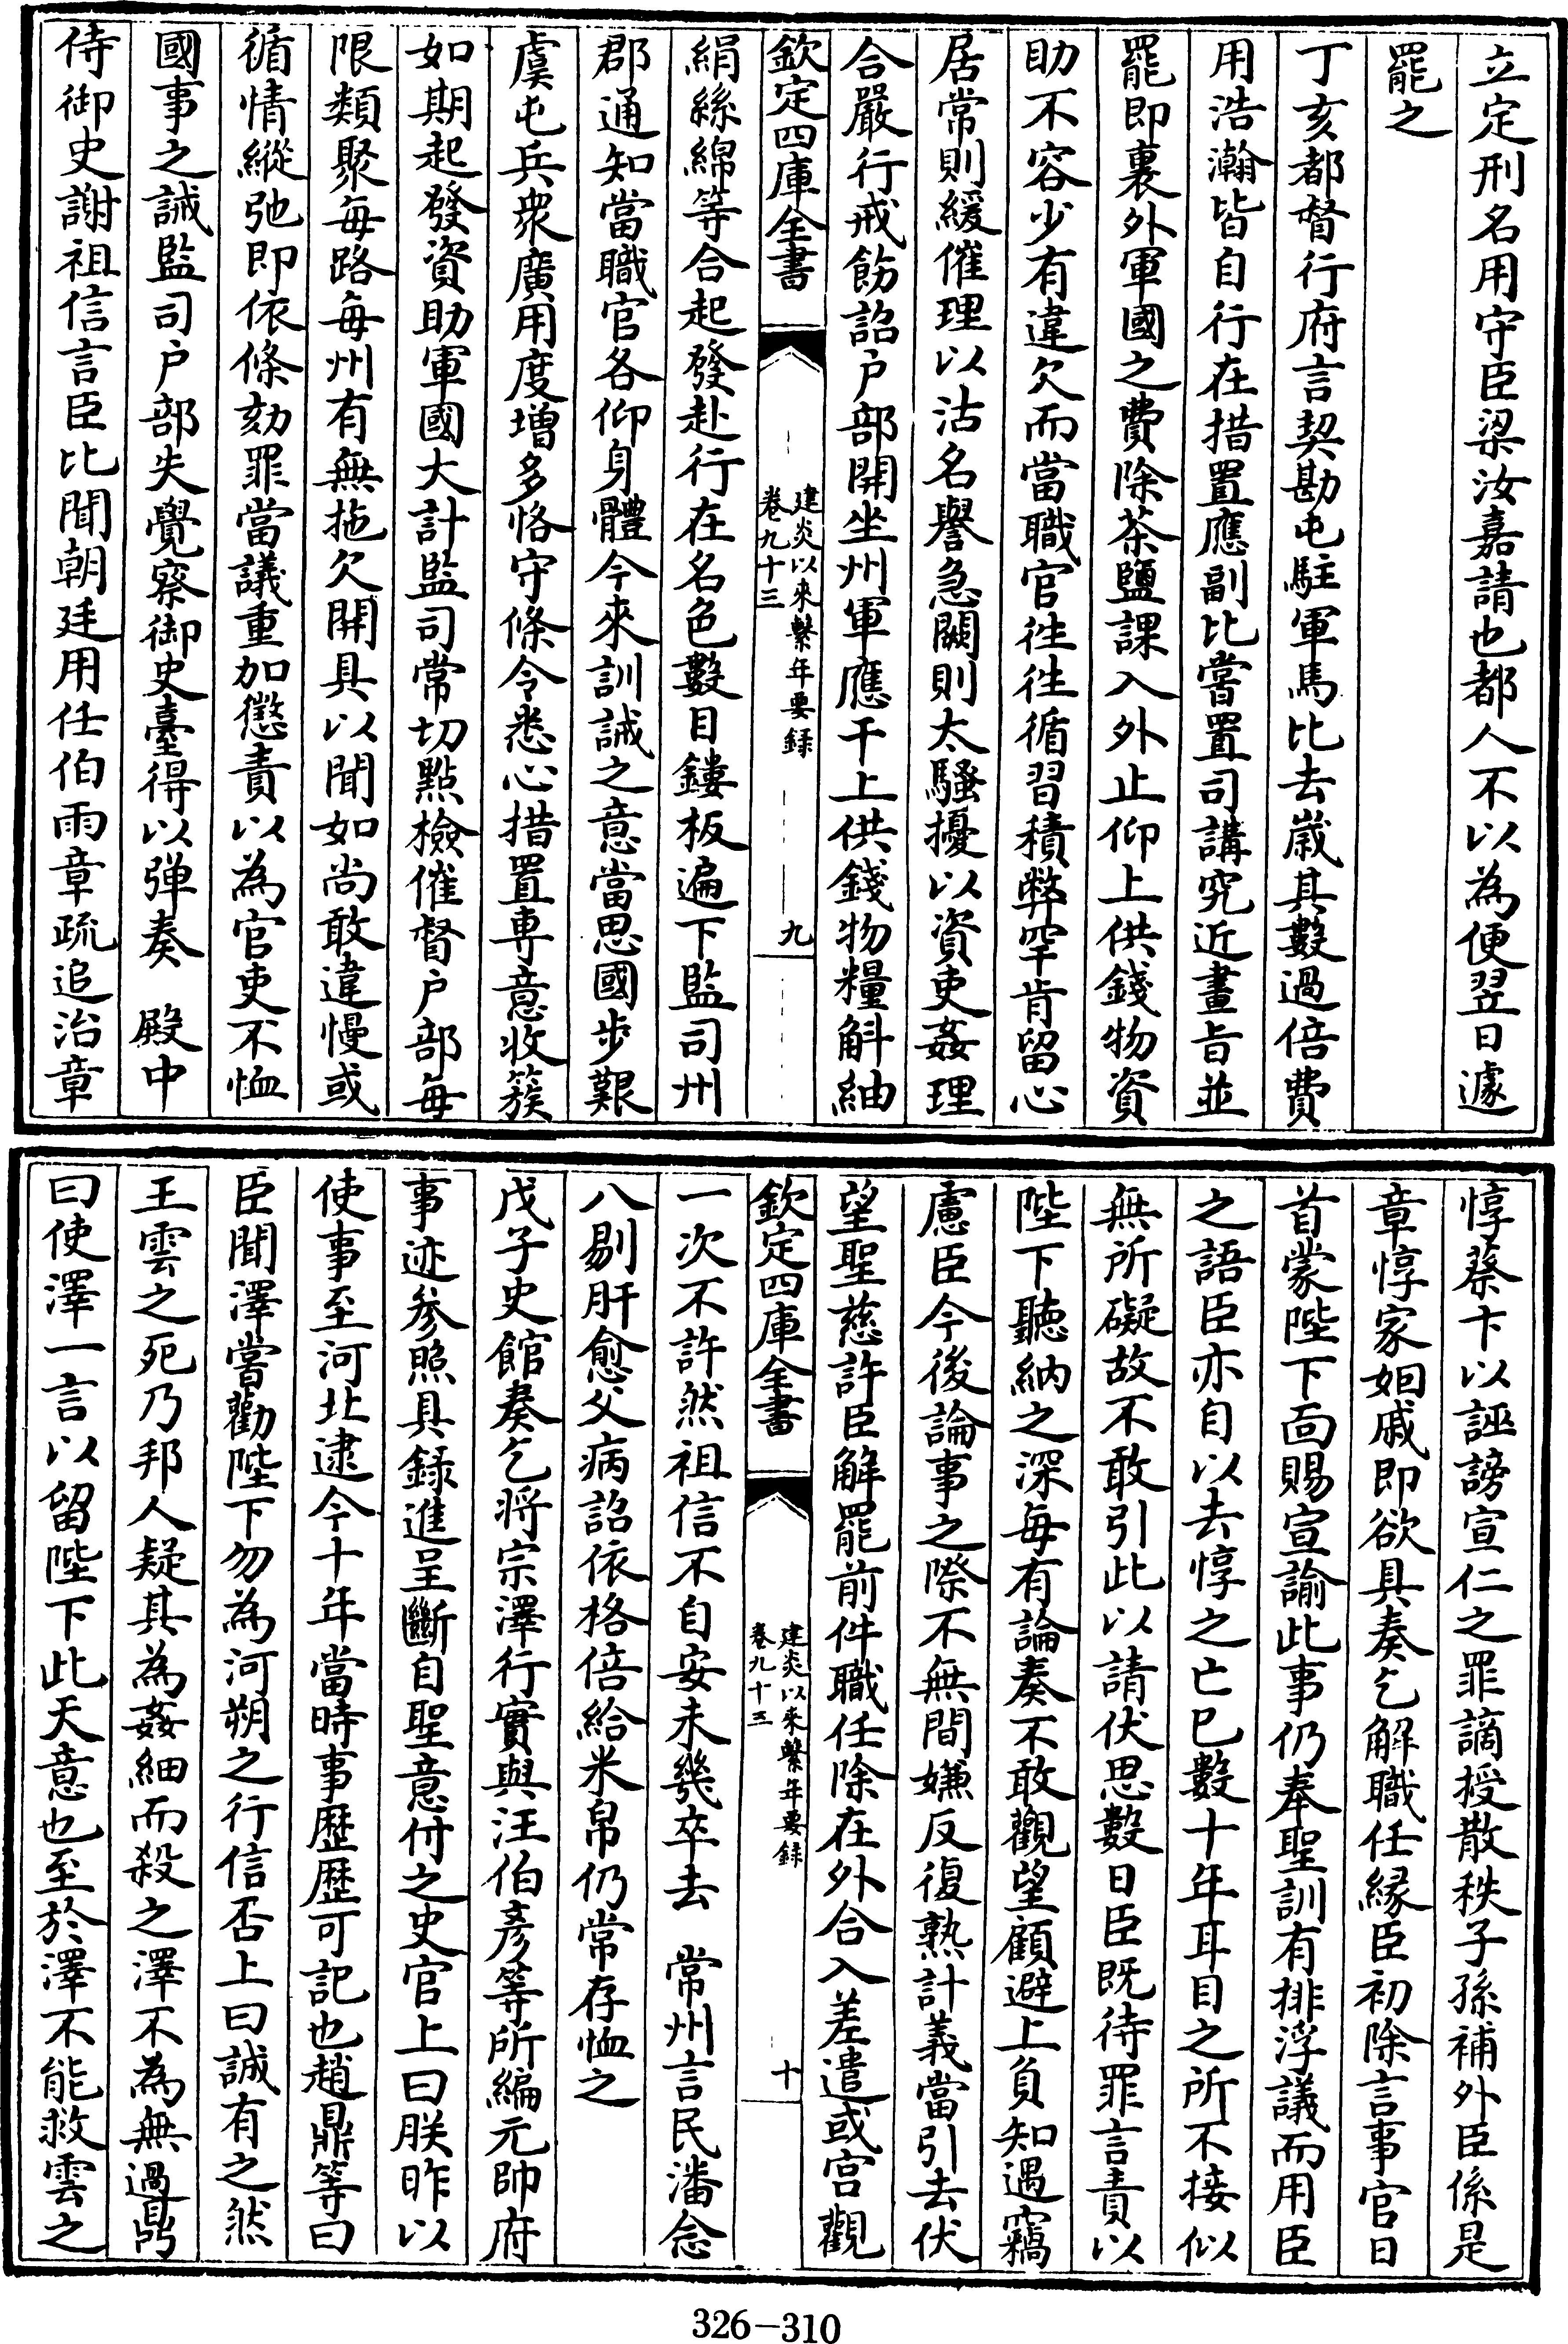 立定刑名用守臣梁汝嘉請也都人不以為便翌日遽
罷之
丁亥都督行府言契勘屯駐軍馬比去嵗其數過倍費
用浩瀚皆自行在措置應副比嘗置司講究近畫旨並
罷即裏外軍國之費除茶鹽課入外止仰上供錢物資
助不容少有違欠而當職官徃徃循習積弊罕肯留心
居常則緩催理以沽名譽急闕則太騷擾以資吏姦理
合嚴行戒飭詔户部開坐州軍應干上供錢物糧斛紬
欽定四庫全書
建炎以來繫年要録
卷九十三
九
絹絲綿等合起發赴行在名色數目鏤板遍下監司州
郡通知當職官各仰身體今來訓誡之意當思國步艱
虞屯兵衆廣用度增多恪守條令悉心措置専意收簇
如期起發資助軍國大計監司常切點檢催督户部毎
限類聚毎路毎州有無拖欠開具以聞如尚敢違慢或
循情縱弛即依條劾罪當議重加懲責以為官吏不恤
國事之誡監司户部失覺察御史臺得以弹奏　殿中
侍御史謝祖信言臣比聞朝廷用任伯雨章疏追治章
惇蔡卞以誣謗宣仁之罪謫授散秩子孫補外臣係是
章惇家姻戚即欲具奏乞解職任縁臣初除言事官日
首蒙陛下面賜宣諭此事仍奉聖訓有排浮議而用臣
之語臣亦自以去惇之亡已數十年耳目之所不接似
無所礙故不敢引此以請伏思數日臣既待罪言責以
陛下聽納之深毎有論奏不敢觀望顧避上負知遇竊
慮臣今後論事之際不無間嫌反復熟計義當引去伏
望聖慈許臣解罷前件職任除在外合入差遣或宫觀
欽定四庫全書
建炎以來繫年要録
卷九十三
十
一次不許然祖信不自安未幾卒去　常州言民潘念
八剔肝愈父病詔依格倍給米帛仍常存恤之
戊子史館奏乞將宗澤行實與汪伯彦等所編元帥府
事迹參照具録進呈斷自聖意付之史官上曰朕昨以
使事至河北逮今十年當時事歴歴可記也趙鼎等曰
臣聞澤嘗勸陛下勿為河朔之行信否上曰誠有之然
王雲之死乃邦人疑其為姦細而殺之澤不為無過鼎
曰使澤一言以留陛下此天意也至於澤不能救雲之
326-310